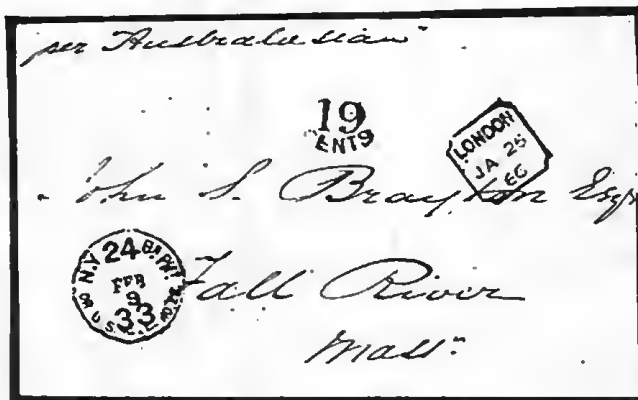 per Australasian"
19
CENTS
LONDON
JA 25
EC
John S. Brayton Esqr
N.Y. 24 Br. Pkt.
FEB
9
OR U.S. 33 NOTES
Fall River
Mass: